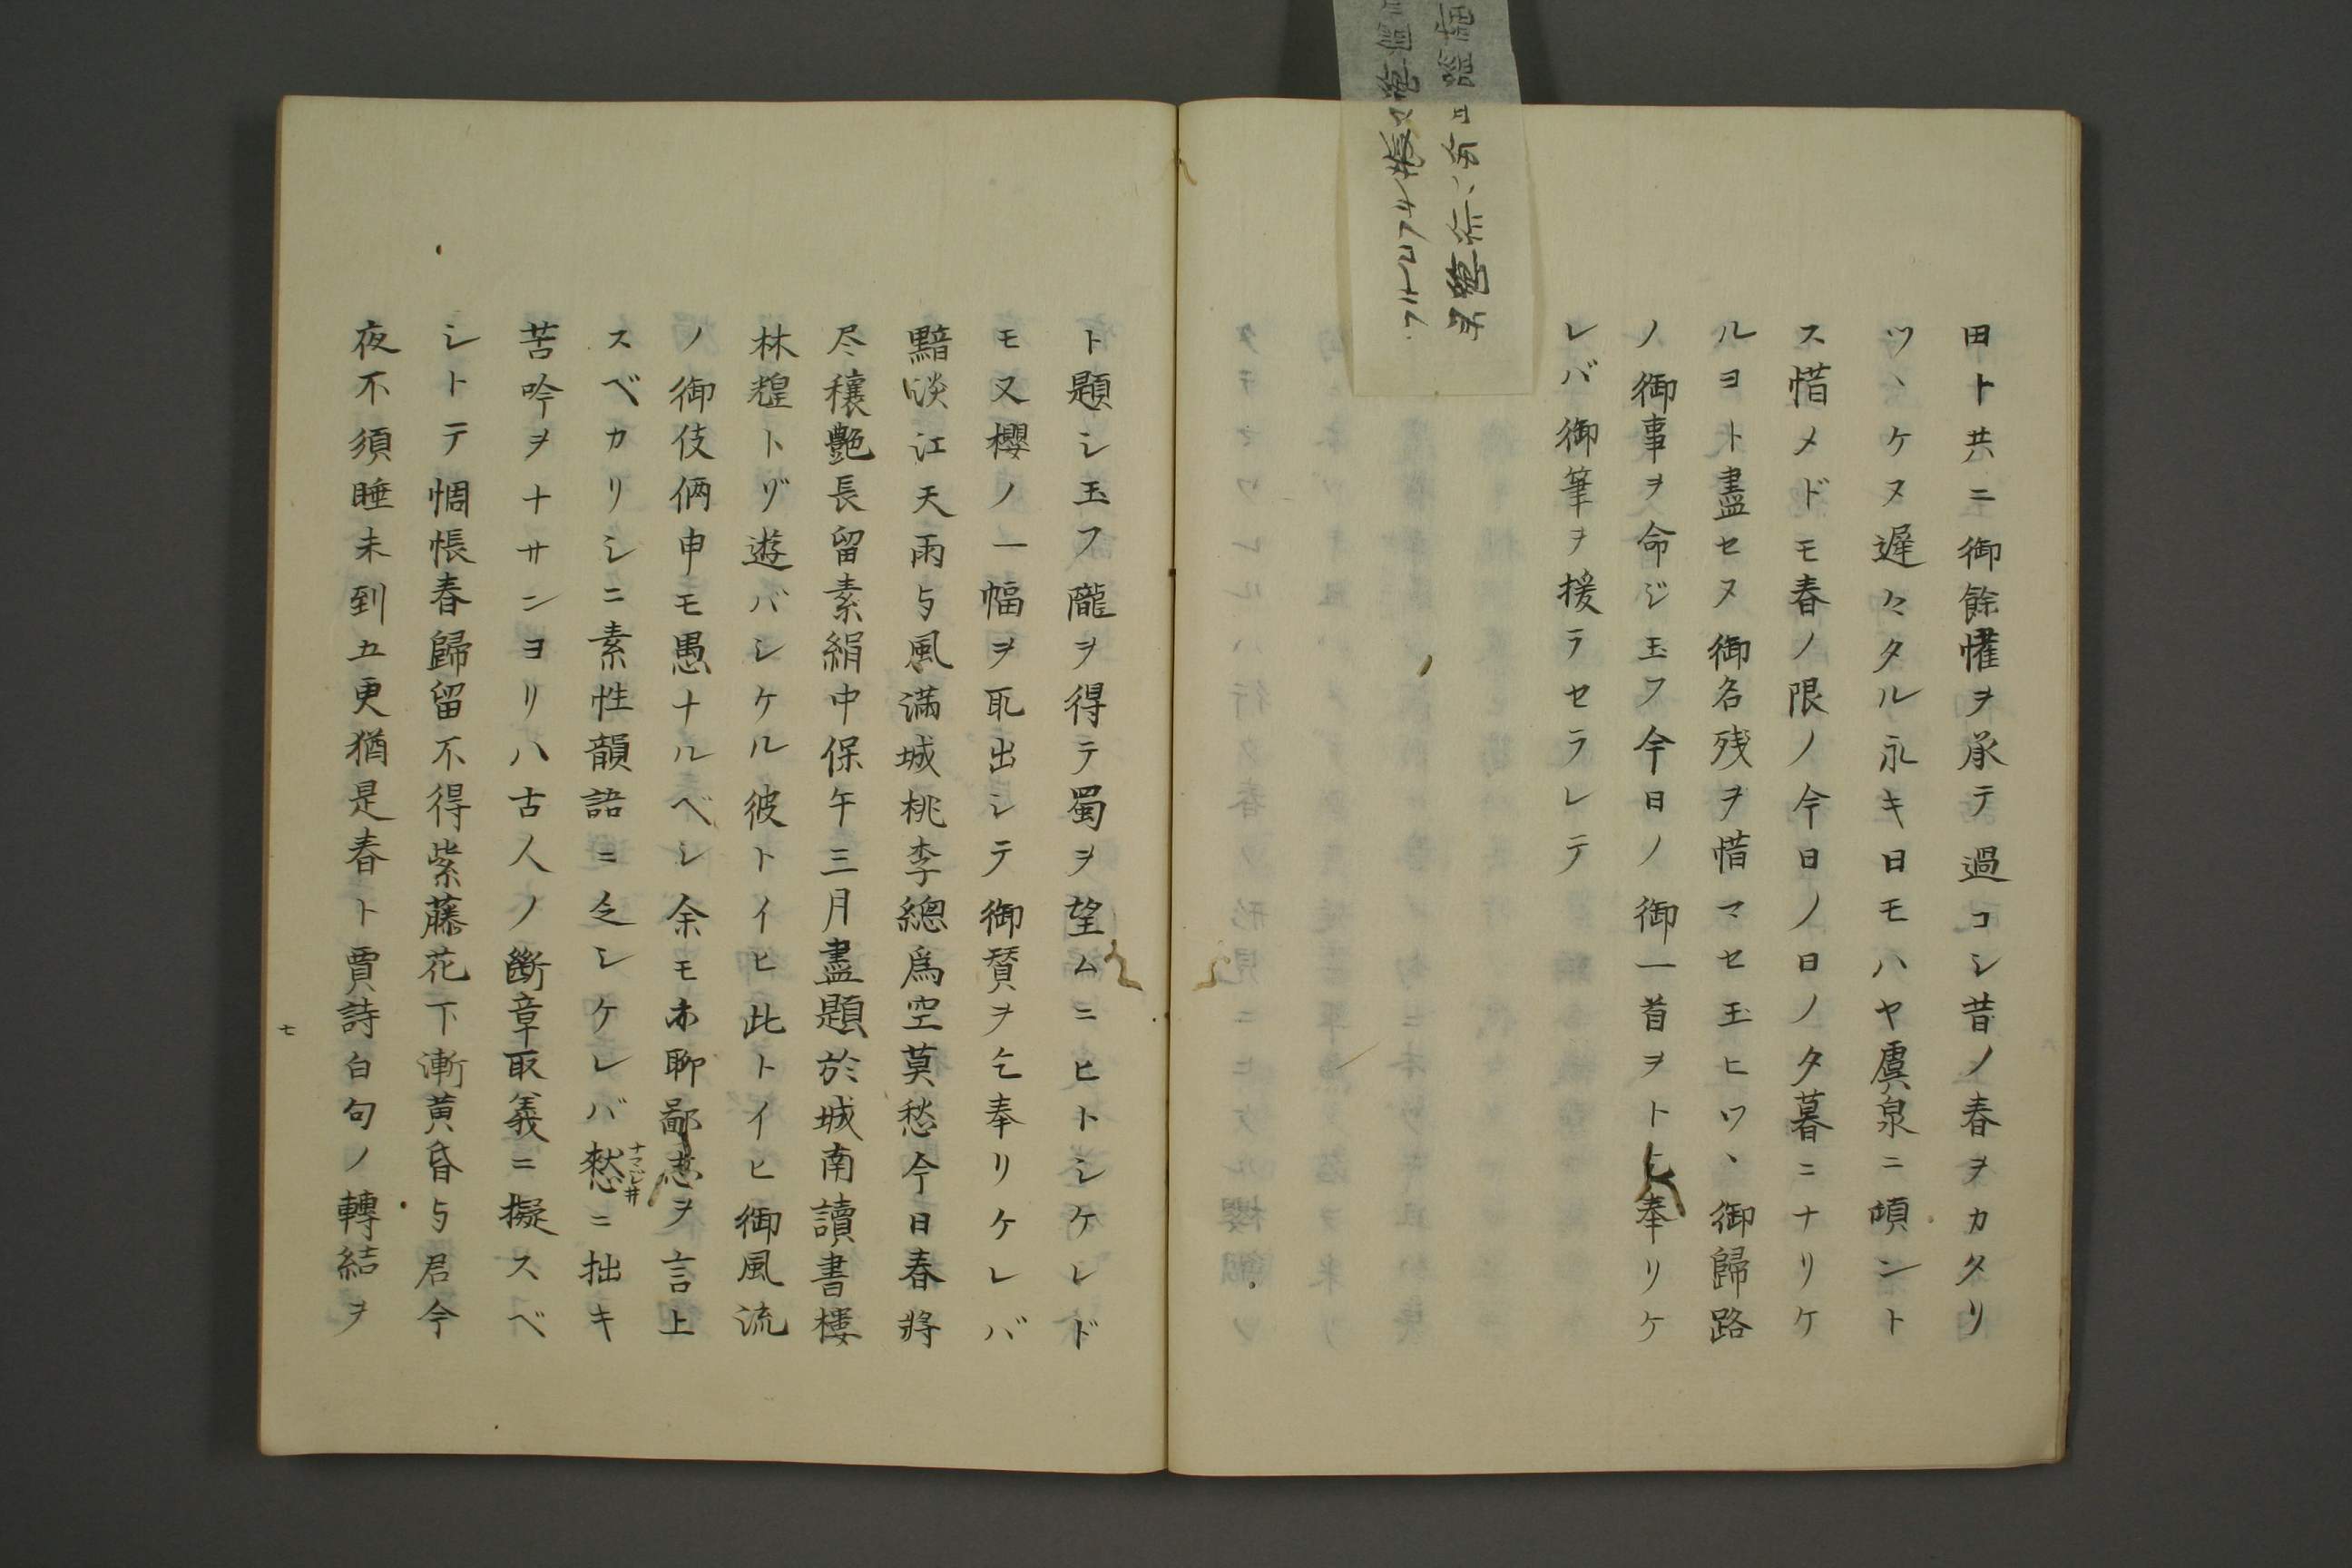 田ト共ニ御餘懽ヲ承テ過コシ昔ノ春ヲカタリ
ツヽケヌ遲々タル永キ日モハヤ虞泉ニ頃ント
ス惜メドモ春ノ限ノ今日ノ日ノタ暮ニナリケ
ルヨト盡セヌ御名残ヲ惜マセ玉ヒツヽ御歸路
ノ御事ヲ命ジ玉フ今日ノ御一首ヲト乞奉リケ
レバ御筆ヲ援ラセラレテ
ト題シ玉フ隴ヲ得テ蜀ヲ望ムニヒトシケレド
モ又櫻ノ一幅ヲ取出シテ御賛ヲ乞奉リケレバ
黯淡江天雨与風滿城桃李總爲空莫愁今日春將
尽穰艶長留素絹中保午三月盡題於城南讀書樓
林糧トゾ遊バシケル彼トイヒ此トイヒ御風流
ノ御伎倆申モ愚ナルベシ余モ亦聊鄙志ヲ言上
スベカリシニ素性韻語ニ乏シケレバ憖ニ拙キ
ナマジ井
苦吟ヲナサンヨリハ古人ノ斷章取義ニ擬スベ
シトテ惆悵春歸留不得紫藤花下漸黄昏与君今
夜不須睡未到五更猶是春ト賈詩白句ノ轉結ヲ
七